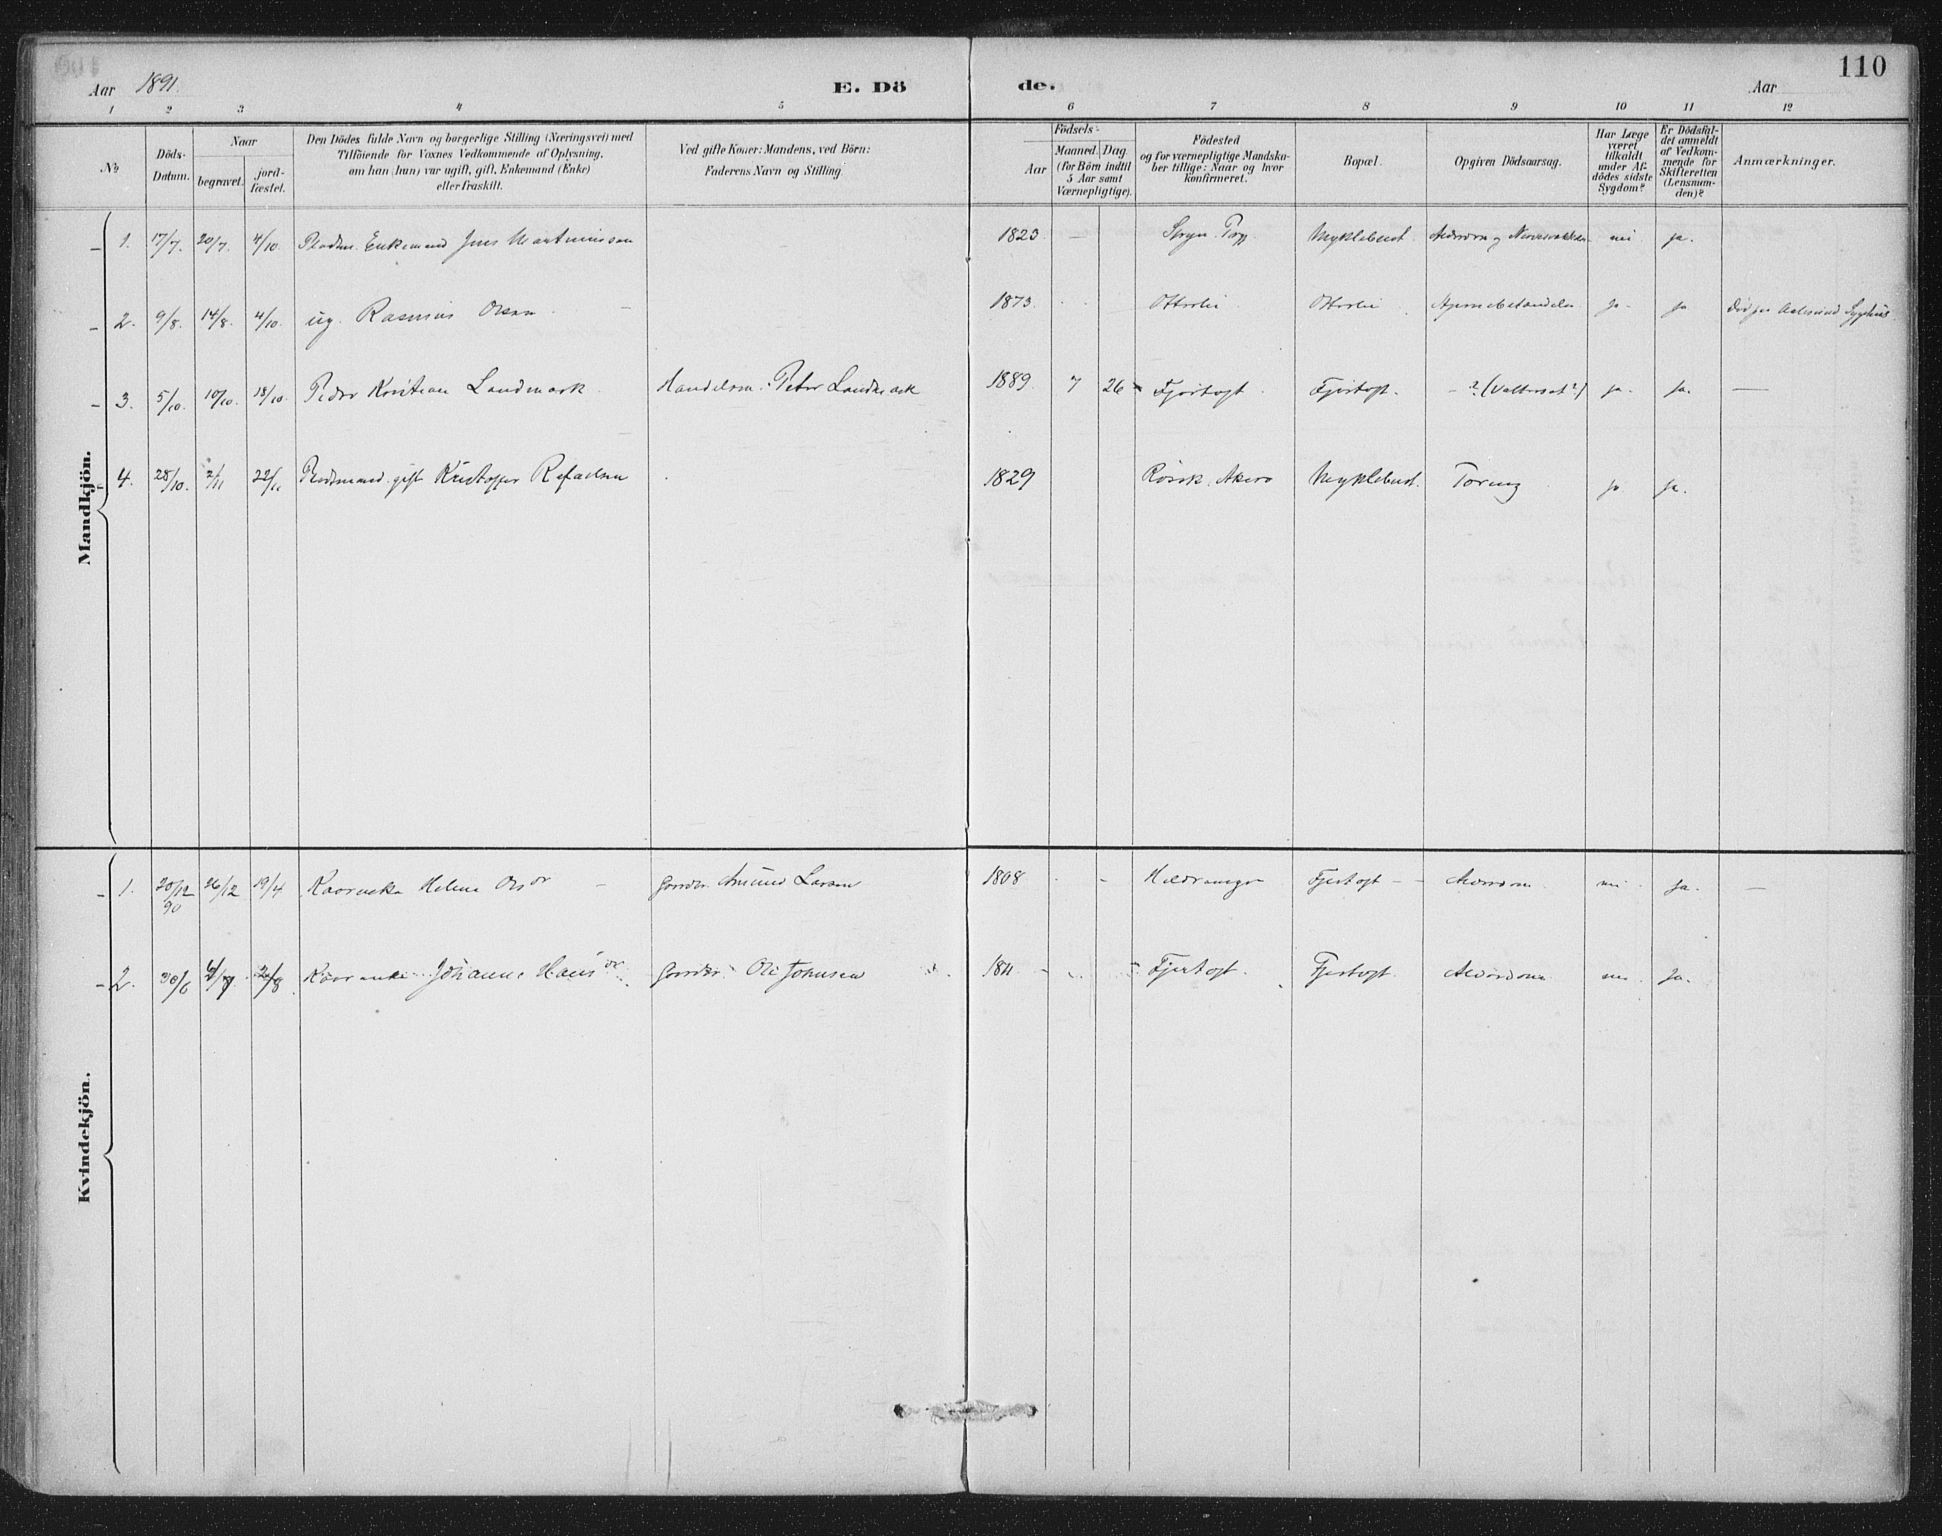 110
Aar 1891. E. Dö de. Aar
1 2 3 4 5 6 7 8 9 10 11 12
No
Döds-Datum.
Naar
begravet. jord-fæstet.
Den Dödes fulde Navn og borgerlige Stilling (Næringsvei) med
Tilföiende for Voxnes Vedkommende af Oplysning,
om han (hun) var ugift, gift, Enkemand (Enke)
eller fraskilt.
Ved gifte Koner: Mandens, ved Börn:
Faderens Navn og Stilling.
Födsels-
Aar
Maaned. Dag
(for Börn indtil
5 Aar samt
Værnepligtige).
Födested
og for værnepligtige Mandska-
ber tillige: Naar og hvor
konfirmeret.
Bopæl.
Opgiven Dödsaarsag.
Har Læge
været
tilkaldt
under Af-
dödes sidste
Sygdom?
Er Dödsfal-
det anmeldt
af Vedkom-
mende for
Skifteretten
(Lensman-
den)?
Anmærkninger.
Mandkjön.
1. 17/7. 20/7. 4/10. Enkemand Jens Martinussen — 1823. — Myklebust. nei ja.
2. 9/8. 14/8. 4/10. ug. Rasmus Olsen — 1873. Otterlei Otterlei ja ja Aalesund Sygehus.
3. 5/10. 10/10. 18/10. Peder Kristian Landmark Handelsm. Peter Landmark 1889. 7 26 Fjörtoft. Fjörtoft. ? ja. ja. —
4. 28/10. 2/11 22/11 gift Kristoffer Rafaelsen 1829 Akerø Myklebust. Tæring ja ja.
Kvindekjön.
1. 20/12 90 26/12 19/4 Kaarenke Helene Olsdr — Gaardbr. Amund Larsen 1808. Hildrestrand Fjørtoft — Alderdom nei ja. —
2. 30/6 Johanne Hansdr. Gaardbr. Ole Johnsen 1811. Fjørtoft. Fjørtoft. Alderdom nei ja.